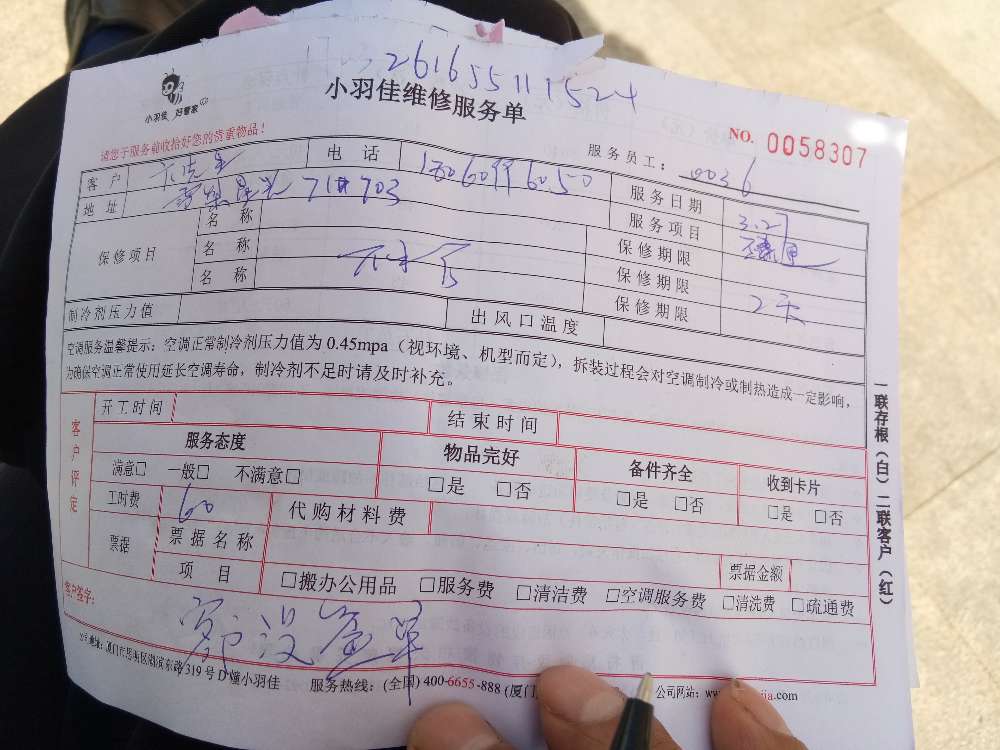 261655111524
小羽佳维修服务单
小羽佳 好管家
请您于服务前收拾好您的贵重物品！
NO. 0058307
服务员工：0036
客户 电话 服务日期 3.27
地址 71#703 服务项目
保修项目 名称 保修期限
名称 保修期限
名称 保修期限 2天
制冷剂压力值 出风口温度
空调服务温馨提示：空调正常制冷剂压力值为 0.45mpa（视环境、机型而定），拆装过程会对空调制冷或制热造成一定影响，
为确保空调正常使用延长空调寿命，制冷剂不足时请及时补充。
客户评定
开工时间 结束时间
服务态度 物品完好 备件齐全 收到卡片
满意□ 一般□ 不满意□ □是 □否 □是 □否 □是 □否
工时费 60 代购材料费
票据 票据名称 票据金额
项目 □搬办公用品 □服务费 □清洁费 □空调服务费 □清洗费 □疏通费
客户签字： 客户没签单
地址：厦门市思明区湖滨东路 319 号 D 幢小羽佳 服务热线：(全国) 400-6655-888 (厦门 公司网站：www. .com
一联存根（白）二联客户（红）